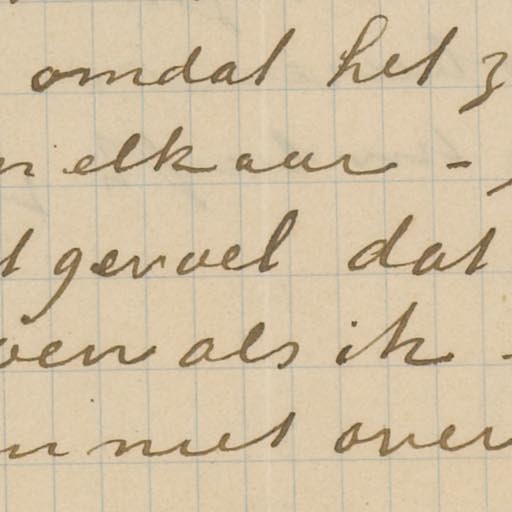 omdat het z
n elkaar -
t gevoel dat
oen als ik -
n niet over